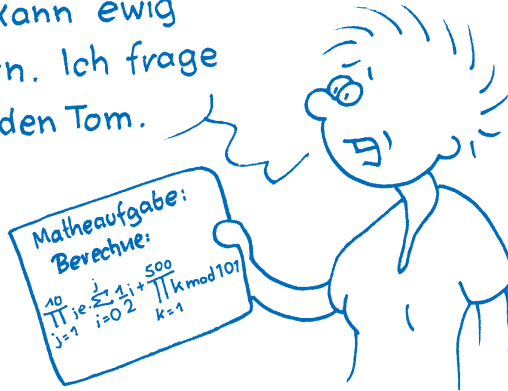 kann ewig
n. Ich frage
den Tom.
Matheaufgabe:
Berechne:
10 j 500
∏ je · ∑ 1/2 i + ∏ k mod 101
j=1 i=0 k=1